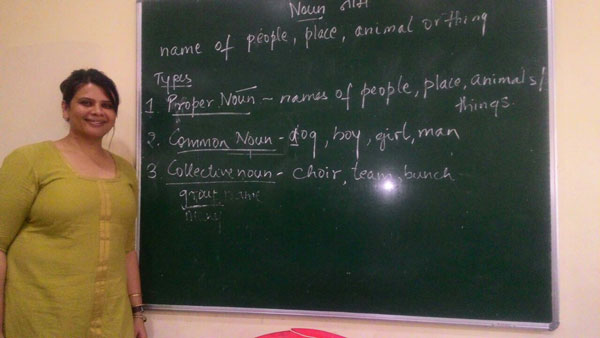 Noun नाम
name of people, place, animal or thing
Types
1 Proper Noun - names of people, place, animals/
things.
2. Common Noun - dog, boy, girl, man
3 Collective noun - choir, team, bunch
group name